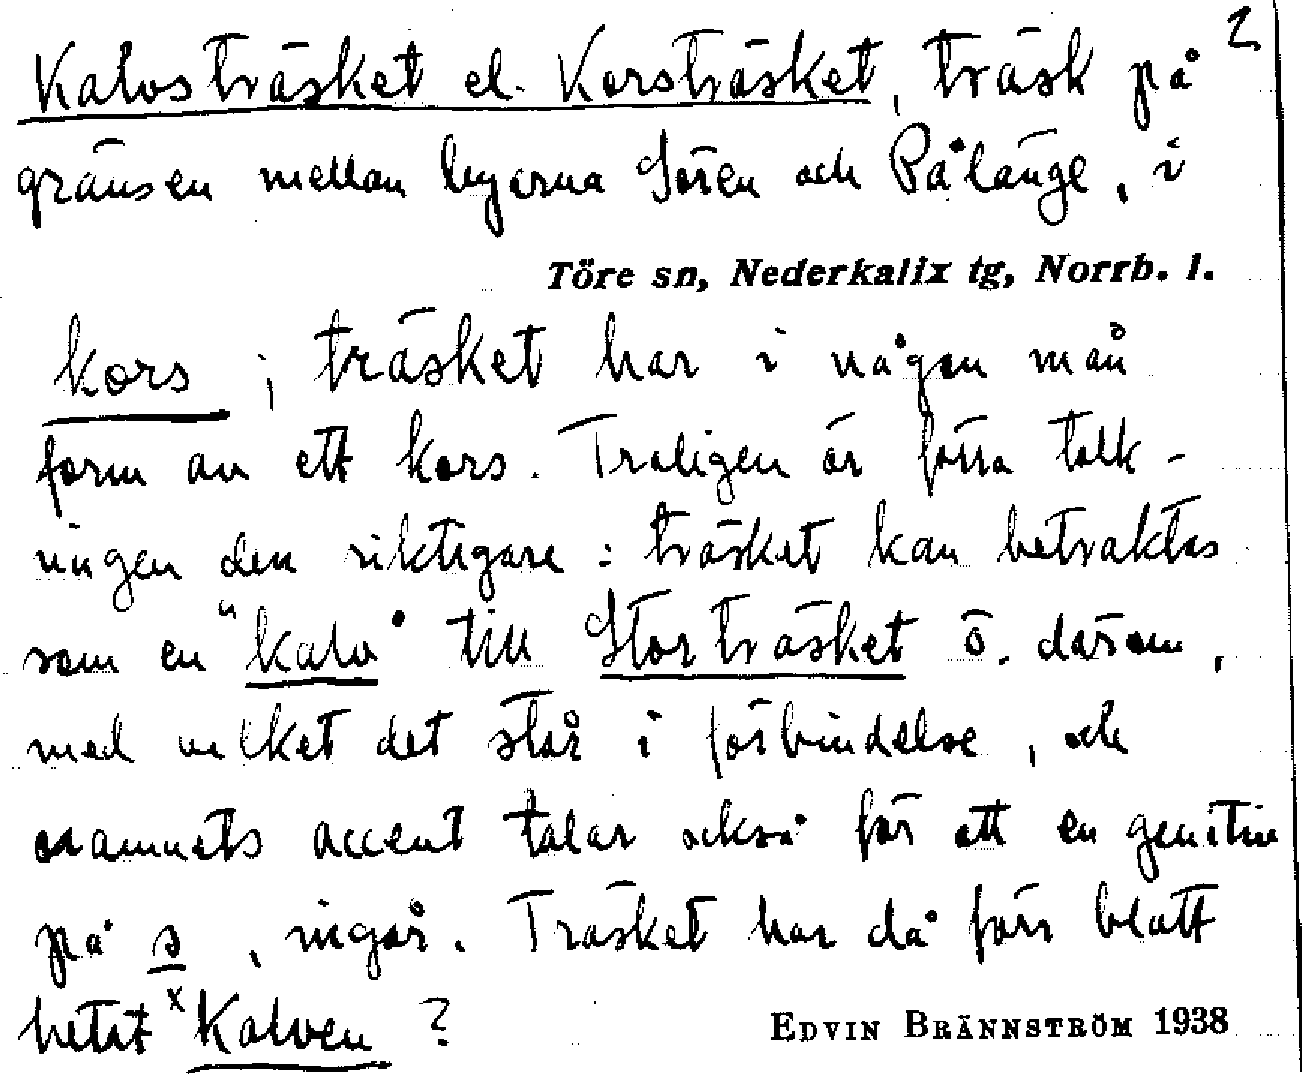 2
Kalvsträsket el. Korsträsket, träsk på
gränsen mellan byarna Sören och Pålänge, i
Töre sn, Nederkalix tg, Norrb. l.
kors ; träsket har i någon mån
form av ett kors. Troligen är förra tolk-
ningen den riktigare : träsket kan betraktas
som en "kalv" till Storträsket ö. därom,
med vilket det står i förbindelse, och
namnets accent talar också för att en genitiv
på s, ingår. Träsket har då förr blott
hetat ˣKalven ?
EDVIN BRÄNNSTRÖM 1938